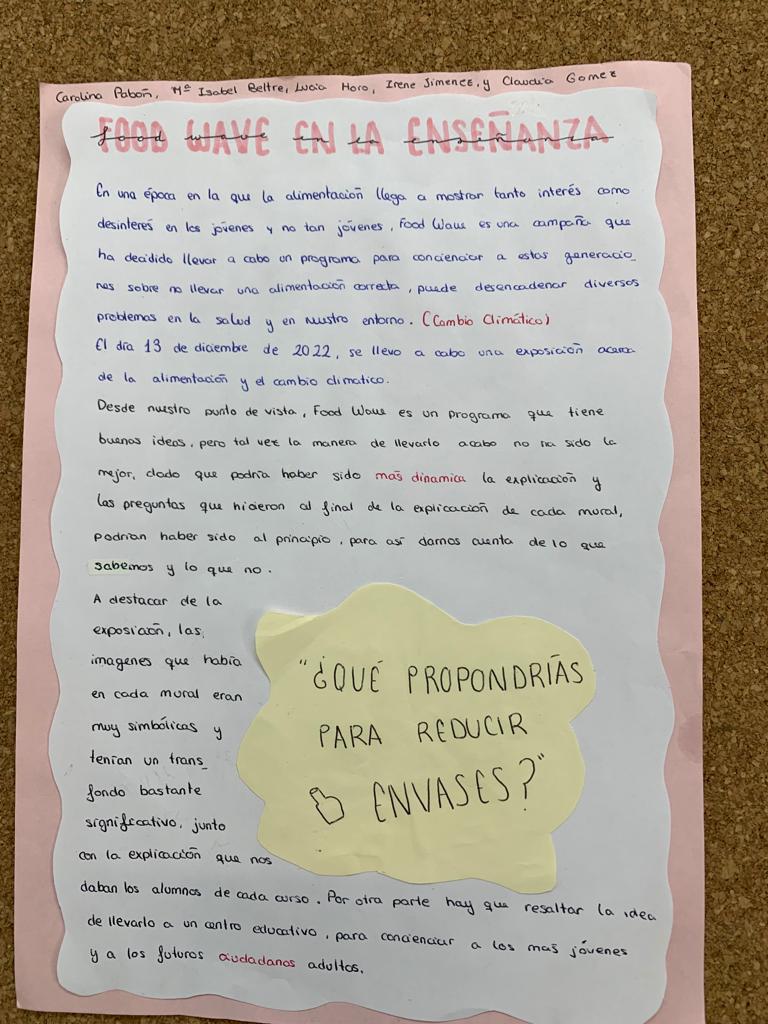 Carolina Pabón, Mª Isabel Beltre, Lucia Horo, Irene Jimenez, y Claudia Gomez
FOOD WAVE EN LA ENSEÑANZA
food wave en la enseñanza
En una época en la que la alimentación llega a mostrar tanto interés como
desinterés en los jóvenes y no tan jóvenes, Food Wave es una campaña que
ha decidido llevar a cabo un programa para concienciar a estas generacio_
nes sobre no llevar una alimentación correcta, puede desencadenar diversos
problemas en la salud y en nuestro entorno. (Cambio Climático)
El día 13 de diciembre de 2022, se llevo a cabo una exposición acerca
de la alimentación y el cambio climatico.
Desde nuestro punto de vista, Food Wave es un programa que tiene
buenas ideas, pero tal vez la manera de llevarlo acabo no ha sido la
mejor, dado que podría haber sido más dinamica la explicación y
las preguntas que hicieron al final de la explicación de cada mural,
podrían haber sido al principio, para así darnos cuenta de lo que
sabemos y lo que no.
A destacar de la
exposición, las
imagenes que había
en cada mural eran
muy simbólicas y
tenían un trans_
fondo bastante
significativo, junto
con la explicación que nos
daban los alumnos de cada curso. Por otra parte hay que resaltar la idea
de llevarlo a un centro educativo, para concienciar a los más jóvenes
y a los futuros ciudadanos adultos.
"¿QUÉ PROPONDRÍAS
PARA REDUCIR
ENVASES?"